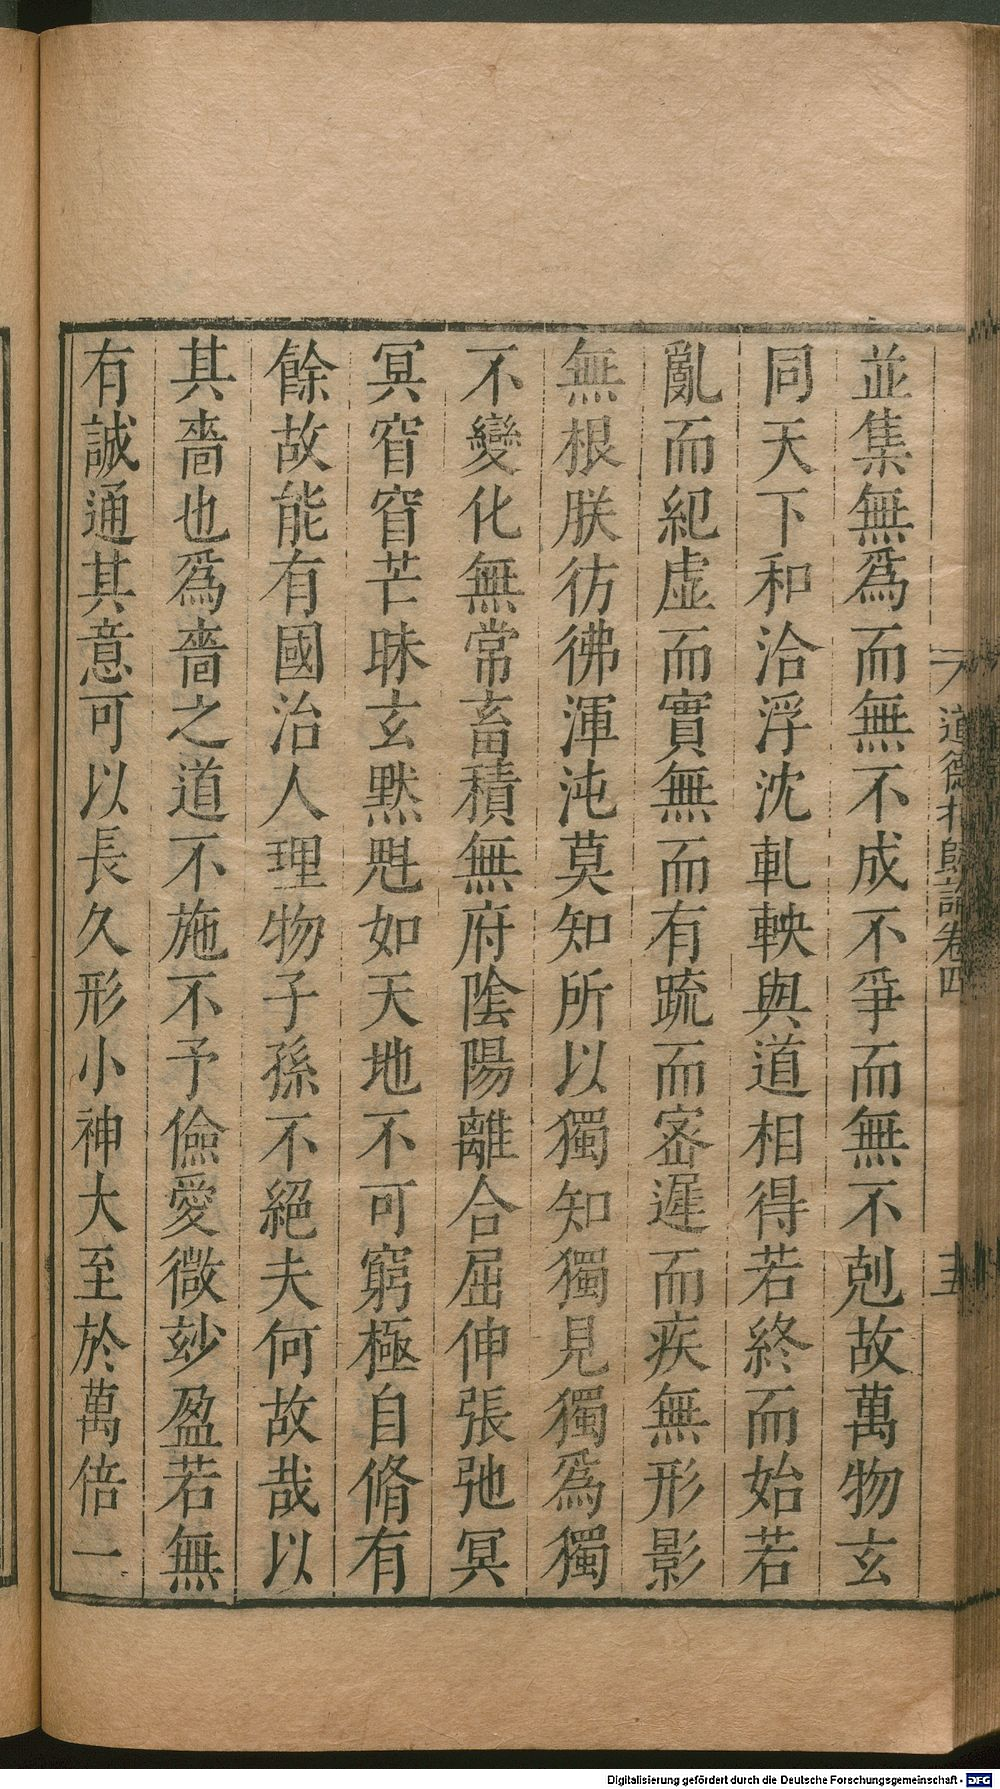 並集無爲而無不成不爭而無不剋故萬物玄
同天下和洽浮沈軋軮與道相得若終而始若
亂而紀虛而實無而有疏而密遲而疾無形影
無根朕彷彿渾沌莫知所以獨知獨見獨爲獨
不變化無常畜積無府陰陽離合屈伸張弛冥
冥窅窅芒昧玄默如天地不可窮極自脩有
餘故能有國治人理物子孫不絕夫何故哉以
其嗇也爲嗇之道不施不予儉愛微妙盈若無
有誠通其意可以長久形小神大至於萬倍一
道德指歸論卷四
五
Digitalisierung gefördert durch die Deutsche Forschungsgemeinschaft - DFG